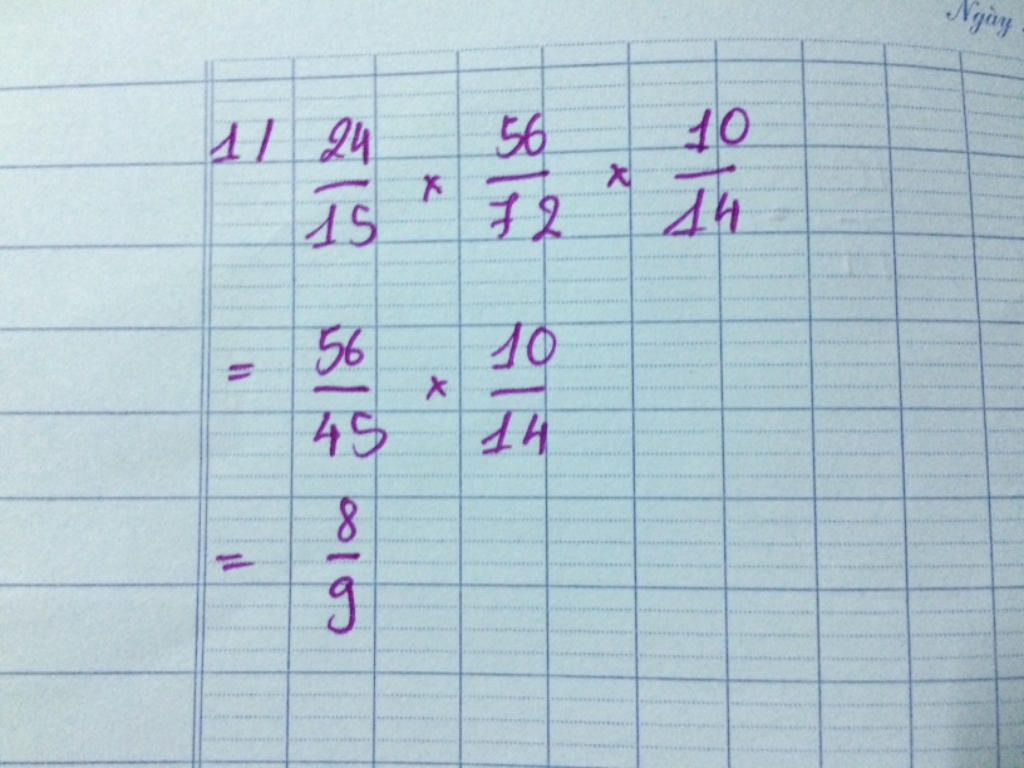 Ngày
1/ 24/15 × 56/72 × 10/14
= 56/45 × 10/14
= 8/9